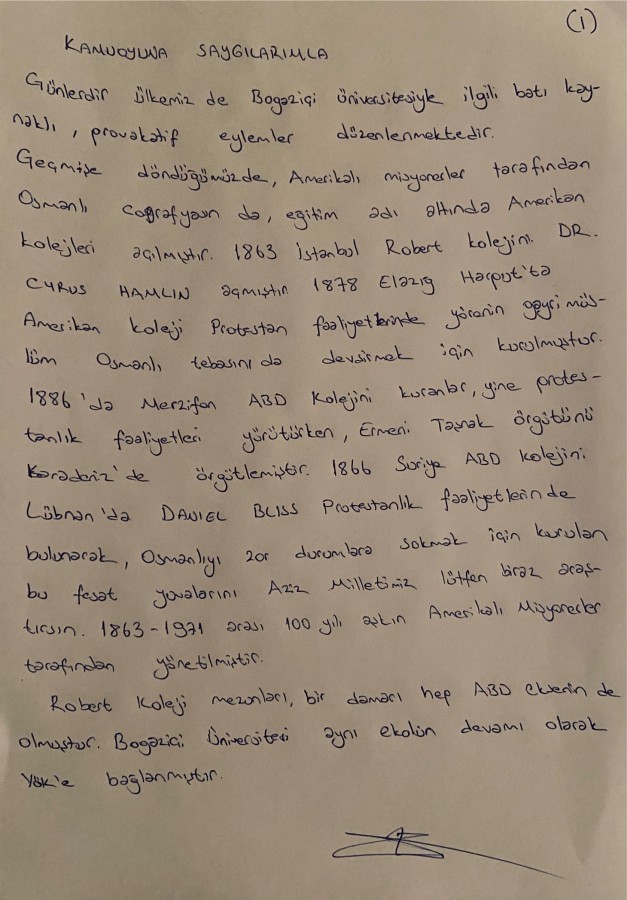 (1)
KAMUOYUNA SAYGILARIMLA
Günlerdir ülkemiz de Bogaziçi üniversitesiyle ilgili batı kay-
naklı, provakatif eylemler düzenlenmektedir.
Geçmişe döndüğümüzde, Amerikalı misyonerler tarafından
Osmanlı coğrafyasın da, eğitim adı altında Amerikan
kolejleri açılmıştır. 1863 İstanbul Robert kolejini DR.
CYRUS HAMLIN açmıştır. 1878 Elazığ Harput'ta
Amerikan koleji Protestan faaliyetlerinde yörenin gayri müs-
lüm Osmanlı tebasını da devşirmek için kurulmuştur.
1886'da Merzifon ABD Kolejini kuranlar, yine protes-
tanlık faaliyetleri yürütürken, Ermeni Taşnak örgütünü
Karadeniz'de örgütlemiştir. 1866 Suriye ABD kolejini
Lübnan'da DANIEL BLISS Protestanlık faaliyetlerin de
bulunarak, Osmanlıyı zor durumlara sokmak için kurulan
bu fesat yuvalarını Aziz Milletimiz lütfen biraz araş-
tırsın. 1863-1971 arası 100 yılı aşkın Amerikalı Misyonerler
tarafından yönetilmiştir.
Robert Koleji mezonları, bir daması hep ABD eksenin de
olmuştur. Bogaziçi Üniversitesi aynı ekolün devamı olarak
YÖK'e bağlanmıştır.